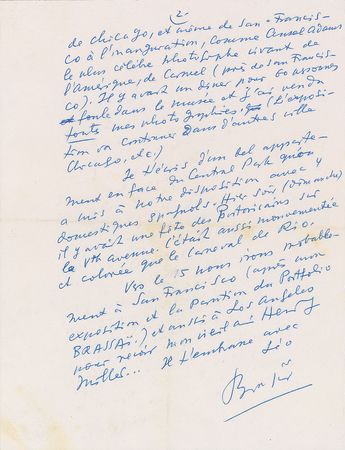 -2-
de Chicago, et même de San-Francis-
co à l'inauguration, comme Ansel Adams
le plus célèbre photographe vivant de
l'Amérique, de Carmel (près de San Francis-
co). Il y avait un dîner pour 60 personnes
foule dans le musée et j'ai vendu
toutes mes photographies. (L'exposi-
tion va continuer dans d'autres villes
Chicago, etc)
Je t'écris d'un bel apparte-
ment en face du Central Park qu'on
a mis à notre disposition avec
domestiques espagnols. Hier soir (Dimanche)
il y avait une fête des Portoricains sur
la Vth avenue. C'était aussi mouvementée
et colorée que le carnaval de Rio.
Vers le 15 nous irons probable-
ment à San Francisco (après mon
exposition et la parution du Portfolio
BRASSAÏ) et aussi à Los Angeles
pour revoir mon vieil ami Henry
Miller... Je t'embrasse avec
Brassaï